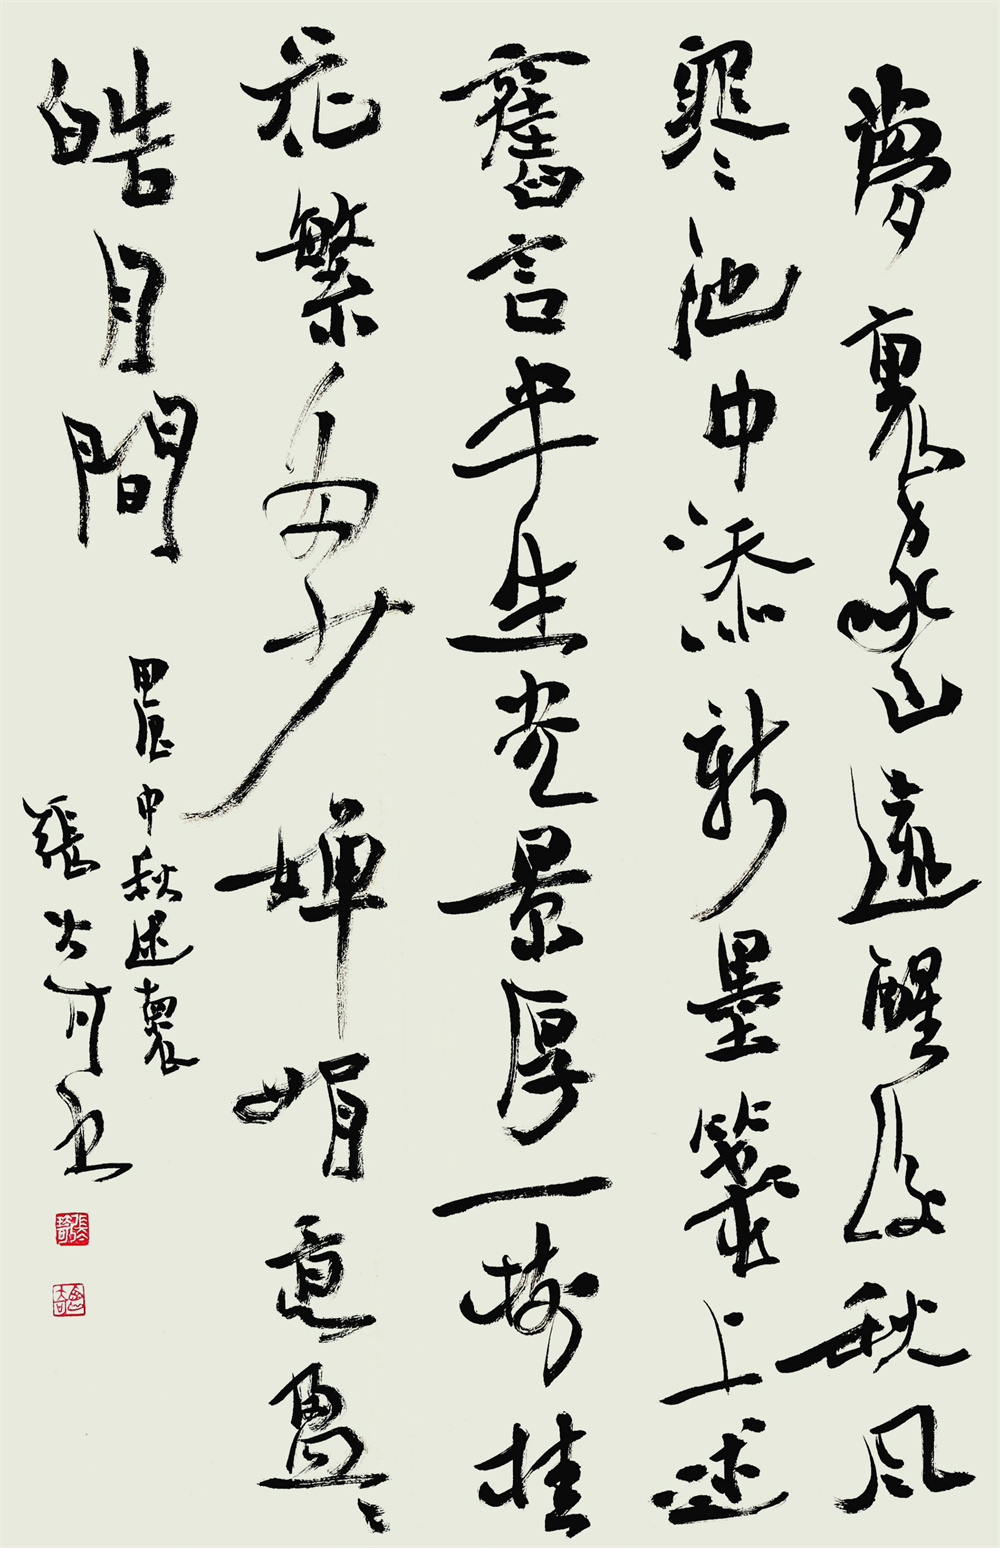 夢裏家山遠醒後秋風
寒池中添新墨箋上述
舊言半生光景厚一樹桂
花繁多少嬋娟意盈々
皓月間
甲辰中秋述懷
張奇書